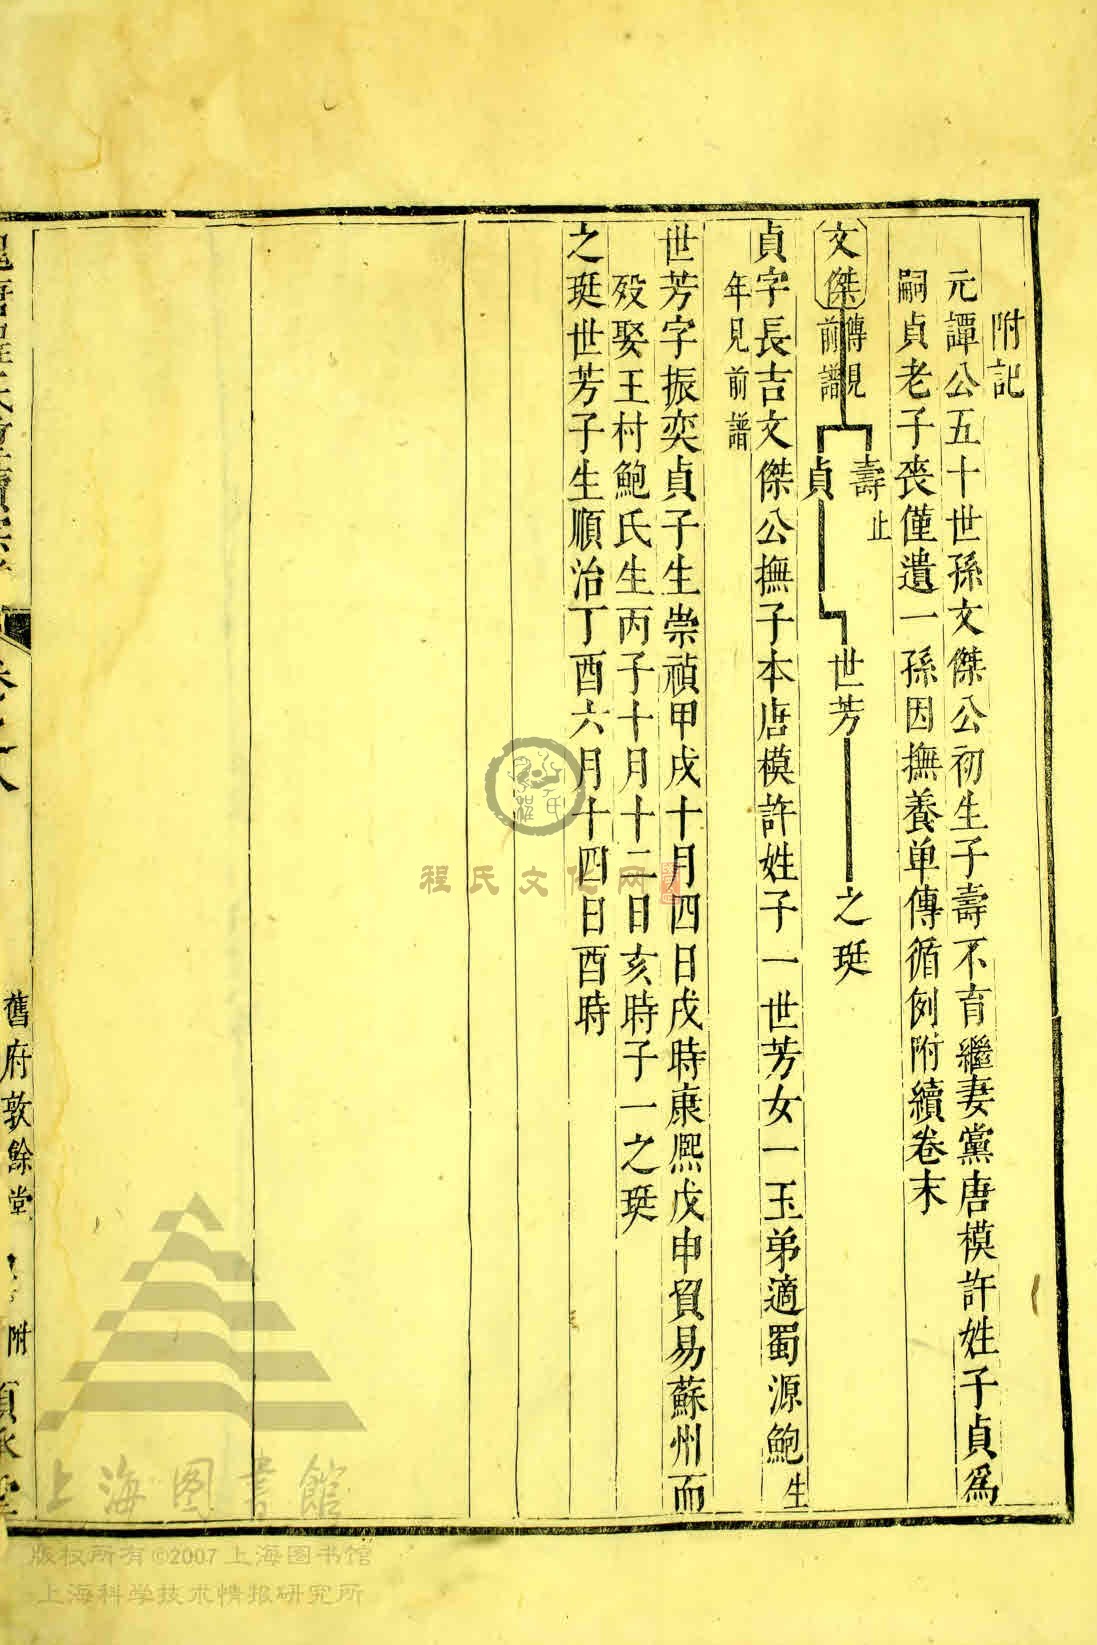 附記
元譚公五十世孫文傑公初生子壽不育繼妻黨唐模許姓子貞爲
嗣貞老子喪僅遺一孫因撫養单傳循例附續卷末
文傑
傳見
前譜
壽止
貞
世芳
之珽
貞字長吉文傑公撫子本唐模許姓子一世芳女一玉弟適蜀源鮑生
年見前譜
世芳字振奕貞子生崇禎甲戌十月四日戌時康熙戊申貿易蘇州而
歿娶王村鮑氏生丙子十月十二日亥時子一之珽
之珽世芳子生順治丁酉六月十四日酉時
舊府敦餘堂
附
程氏文化网
上海图書館
版权所有©2007上海图书馆
上海科学技术情报研究所